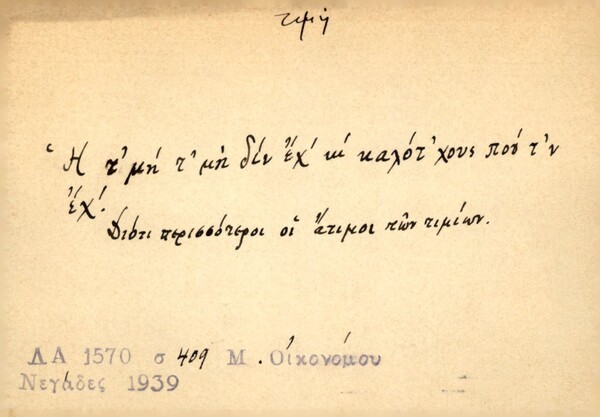 τιμή
Ἡ τ'μή τ'μὴ δὲν ἔχ' κὶ καλότ'χους ποὺ τ'ν
ἔχ'.
Διότι περισσότεροι οἱ ἄτιμοι τῶν τιμίων.
ΛΑ 1570 σ 409 Μ. Οἰκονόμου
Νεγάδες 1939